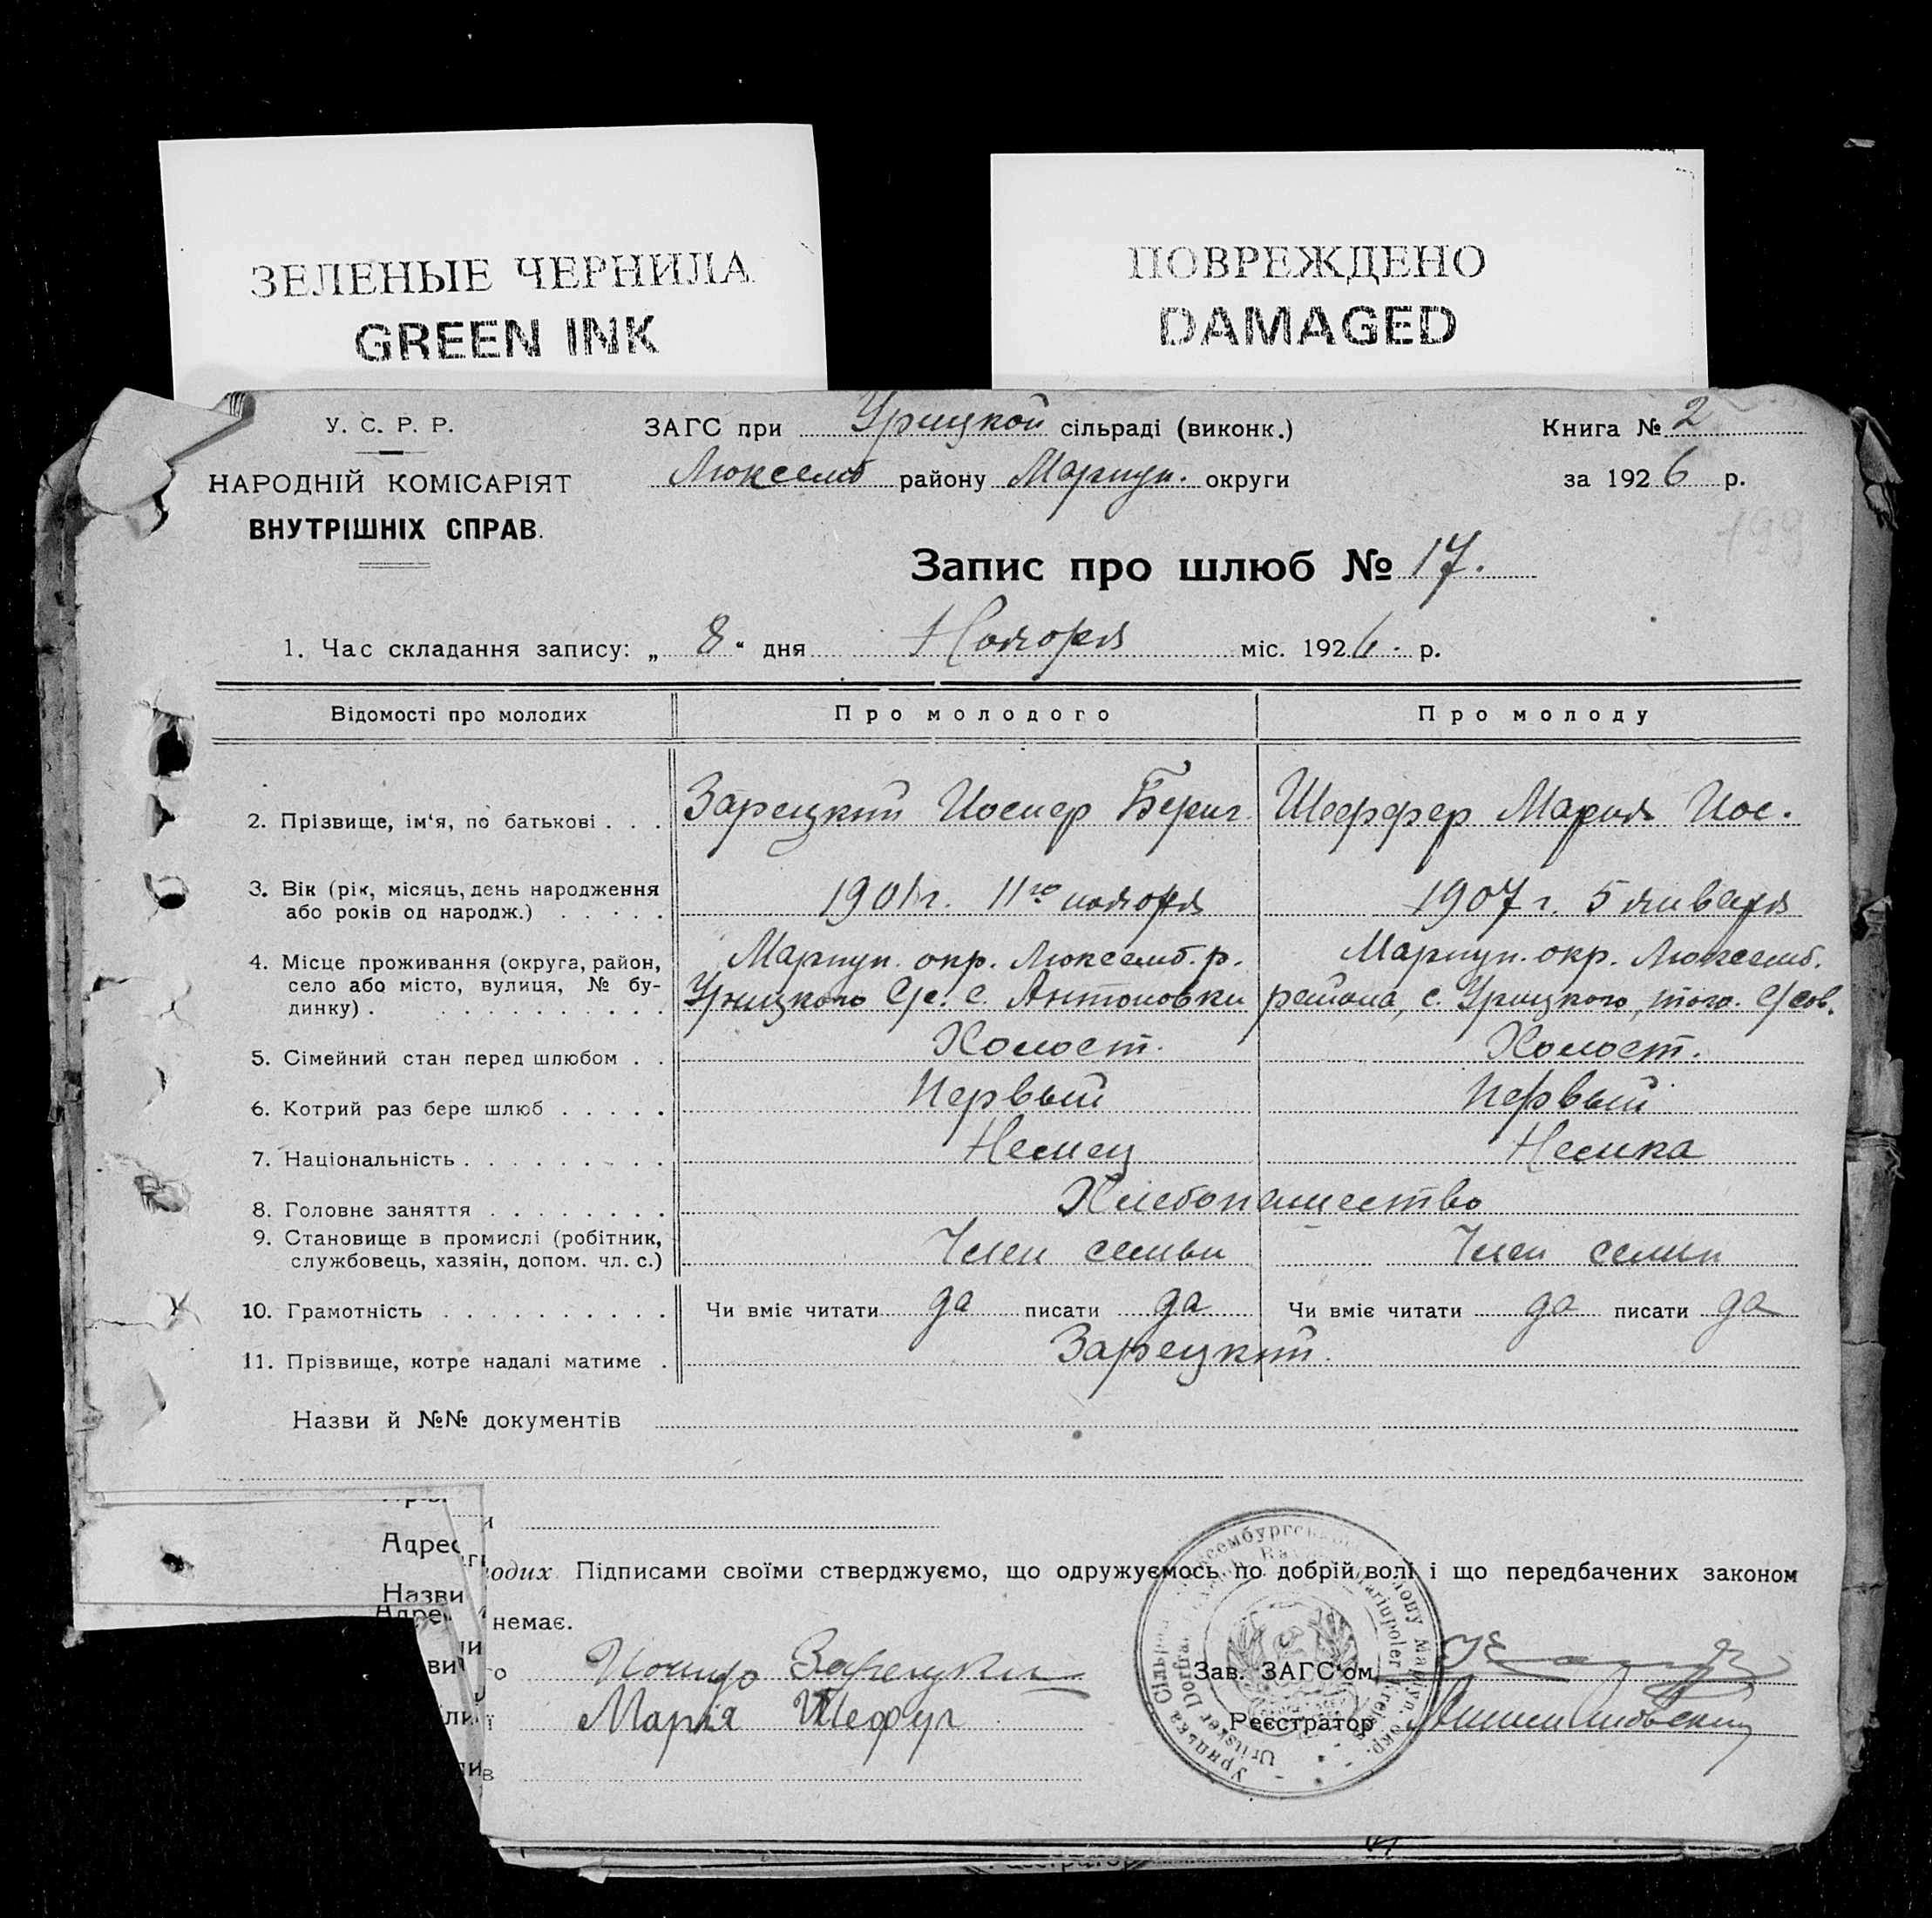 ЗЕЛЕНЫЕ ЧЕРНИЛА
GREEN INK
ПОВРЕЖДЕНО
DAMAGED
У. С. Р. Р.
НАРОДНІЙ КОМІСАРІЯТ
ВНУТРІШНІХ СПРАВ.
ЗАГС при Урицкой сільраді (виконк.)
Люксемб району Мариуп. округи
Книга № 2
за 1926 р.
199
Запис про шлюб № 17.
1. Час складання запису: „ 8 “ дня Ноября міс. 1926. р.
Відомості про молодих Про молодого Про молоду
2. Прізвище, ім‘я, по батькові . . . Зарецкий Иосиф Шеффер Мария Иос.
3. Вік (рік, місяць, день народження
або років од народж.) . . . . . 1901 г. 11го ноября 1907 г. 5 января
4. Місце проживання (округа, район,
село або місто, вулиця, № бу-
динку) . . . . . . . . . .
Мариуп. окр. Люксемб. р.
Урицкого С/с. с. Антоновки
Мариуп. окр. Люксемб.
района, с. Урицкого, того. С/сов.
5. Сімейний стан перед шлюбом . . Холост. Холост.
6. Котрий раз бере шлюб . . . . . Первый Первый
7. Національність . . . . . . . . . Немец Немка
8. Головне заняття . . . . . . . . Хлебопашество
9. Становище в промислі (робітник,
службовець, хазяін, допом. чл. с.) Член семьи Член семьи
10. Грамотність . . . . . . . . . . Чи вміє читати да писати да Чи вміє читати да писати да
11. Прізвище, котре надалі матиме . Зарецкий.
Назви й №№ документів
Адрес
Назви
одих Підписами своїми стверджуємо, що одружуємось по добрій волі і що передбачених законом
немає.
Зарецки
Зав. ЗАГС‘ом
Марія Шефер
Реєстратор